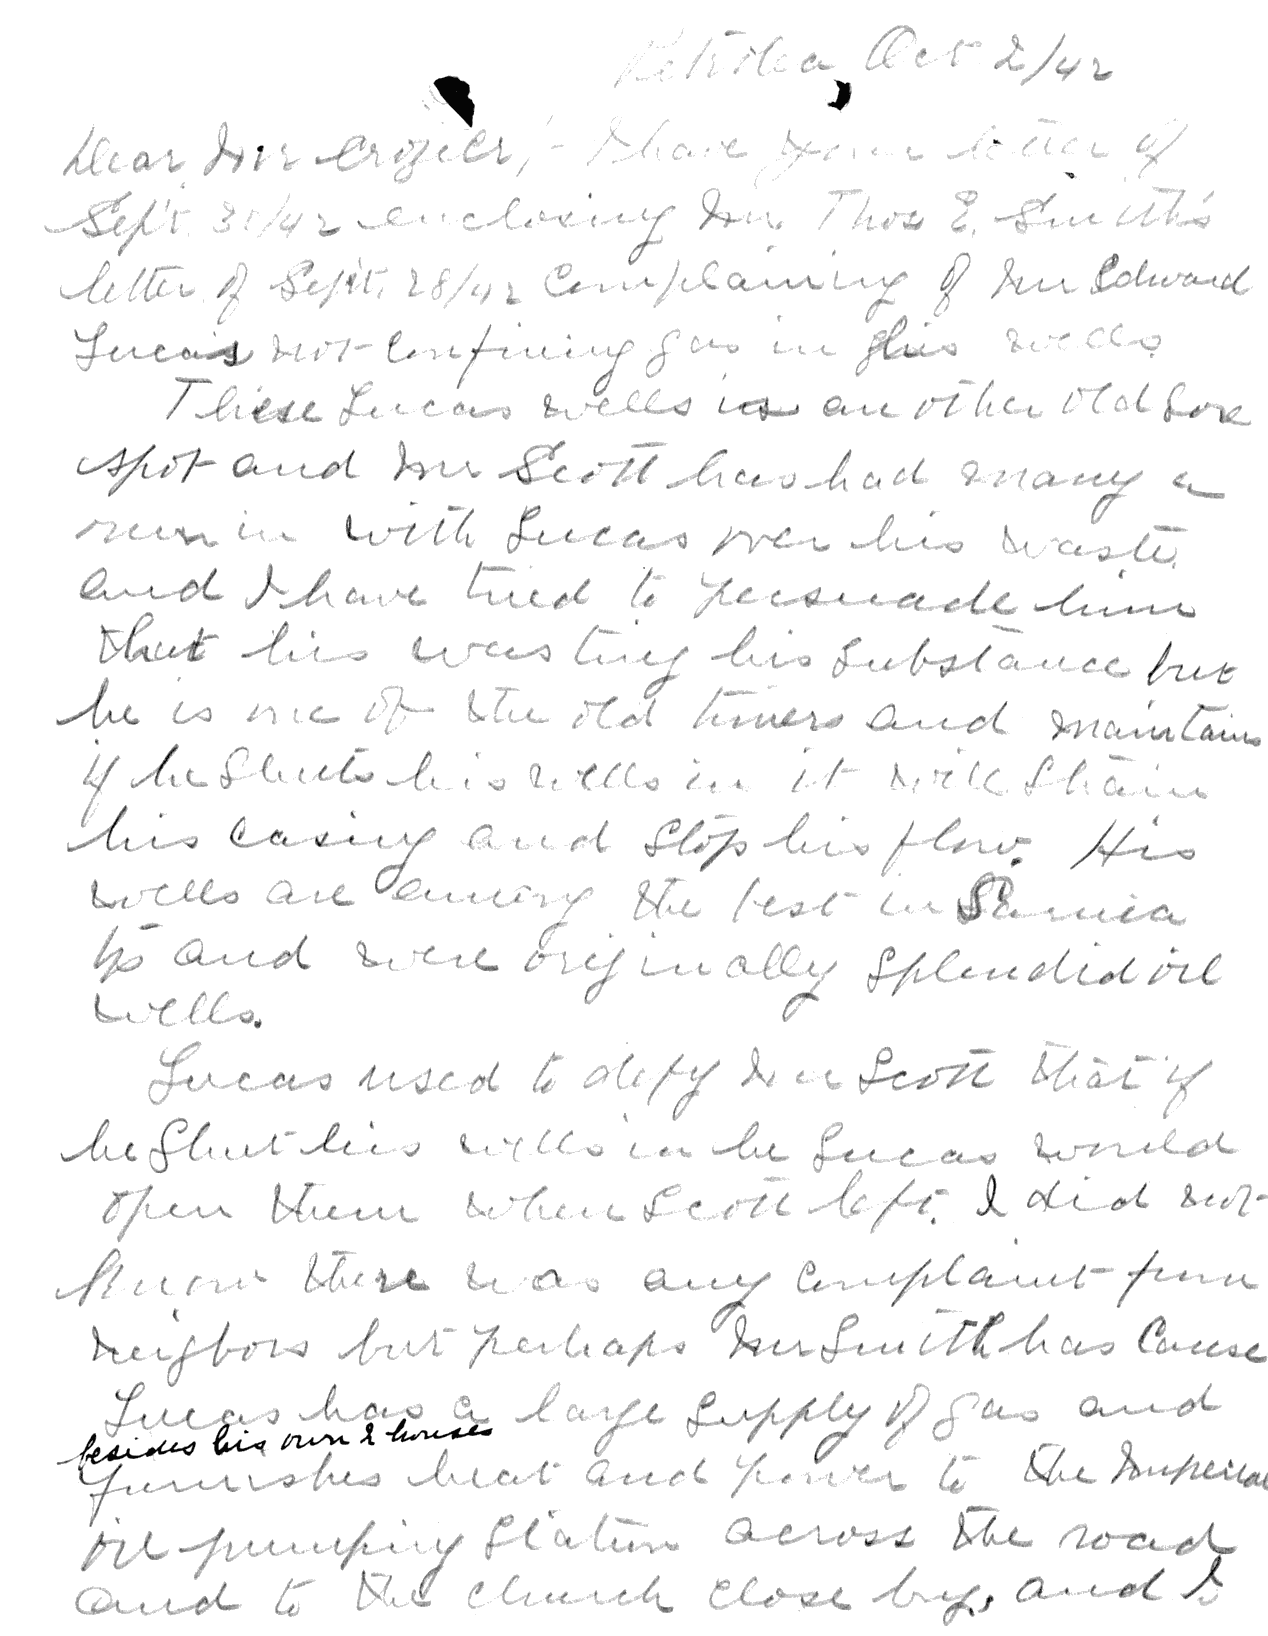 Petrolea Oct 2/42
Dear Mr Crozier,- I have your letter of
Sept. 30/42 enclosing Mr. Thos E. Smith's
letter of Sept. 28/42 complaining of Mr Edward
Lucas not confining gas in his wells.
These Lucas wells is another old sore
spot and Mr Scott has had many a
run in with Lucas over his waste
and I have tried to persuade him
that his wasting his substance but
he is one of the old timers and maintains
if he shuts his wells in it will strain
his casing and stop his flow. His
wells are among the best in Sarnia
Tp and were originally splendid oil
wells.
Lucas used to defy Mr Scott that if
he shut his wells in he Lucas would
open them when Scott left. I did not
know there was any complaint from
neigbors but perhaps Mr Smith has cause
Lucas has a large supply of gas and
besides his own 2 houses
furnishes heat and power to the Imperial
oil pumping station across the road
and to the church close by, and I